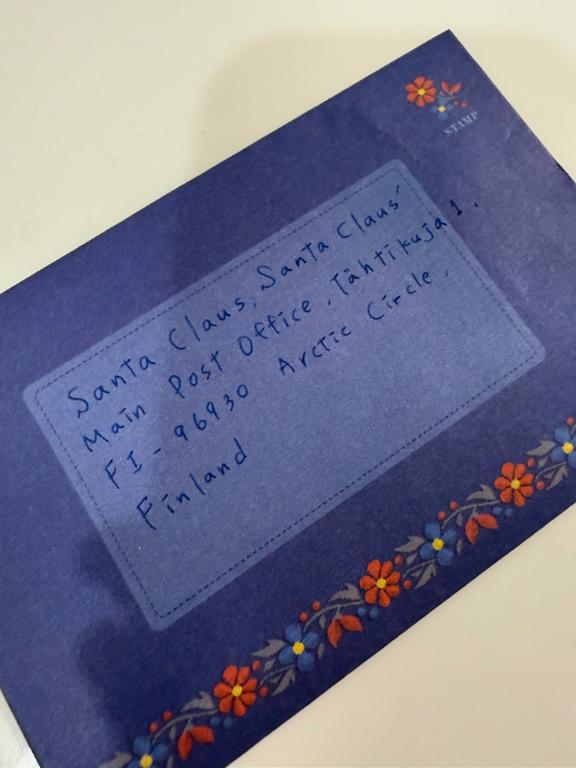 STAMP
Santa Claus, Santa Claus'
Main Post Office, Tähtikuja 1.
FI-96930 Arctic Circle,
Finland